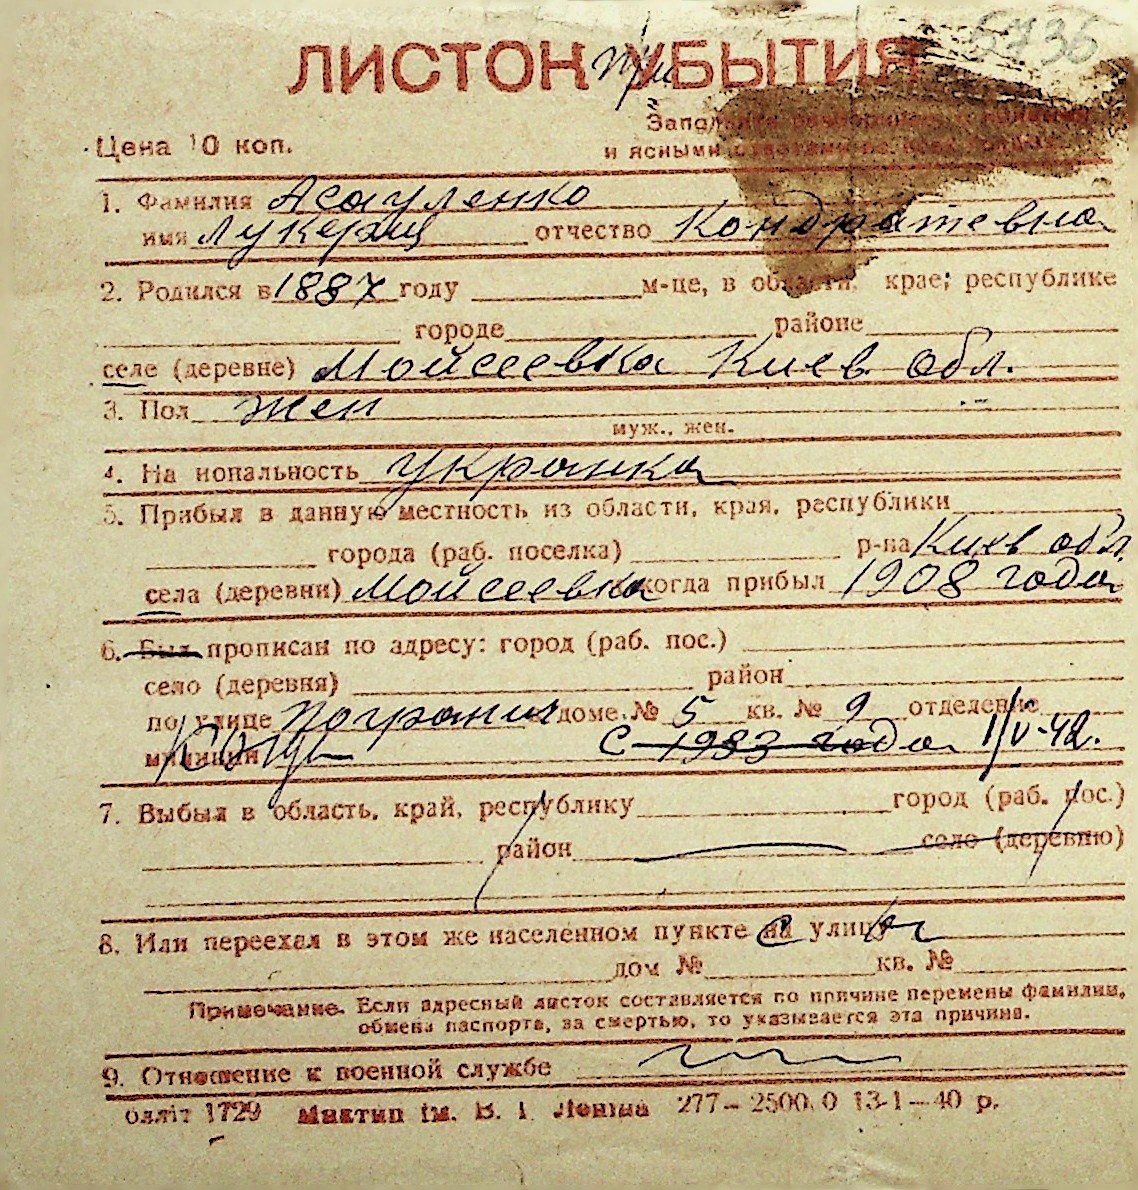 6736
ЛИСТОК при УБЫТИЯ
Цена 10 коп.
и ясными
1. Фамилия Асауленко
имя Лукерия отчество Кондратевна
2. Родился в 1887 году м-це, в области, крае; республике
городе районе
селе (деревне) Мойсеевка Киев. обл.
3. Пол жен
муж., жен.
4. На иональность украинка
5. Прибыл в данную местность из области, края, республики
города (раб. поселка) р-на Киев обл
села (деревни) Мойсеевка когда прибыл 1908 года
6. Был прописан по адресу: город (раб. пос.)
село (деревня) район
по улице Погранич доме № 5 кв. № 9 отделение
милиции с 1933 года 1/V-42.
7. Выбыл в область, край, республику город (раб. пос.)
район село (деревню)
8. Или переехал в этом же населенном пункте на улицу
дом № кв. №
Примечание. Если адресный листок составляется по причине перемены фамилии,
обмена паспорта, за смертью, то указывается эта причина.
9. Отношение к военной службе
блліт 1729 Миктип ім. В. І. Леніна 277—2500.0 13-1—40 р.